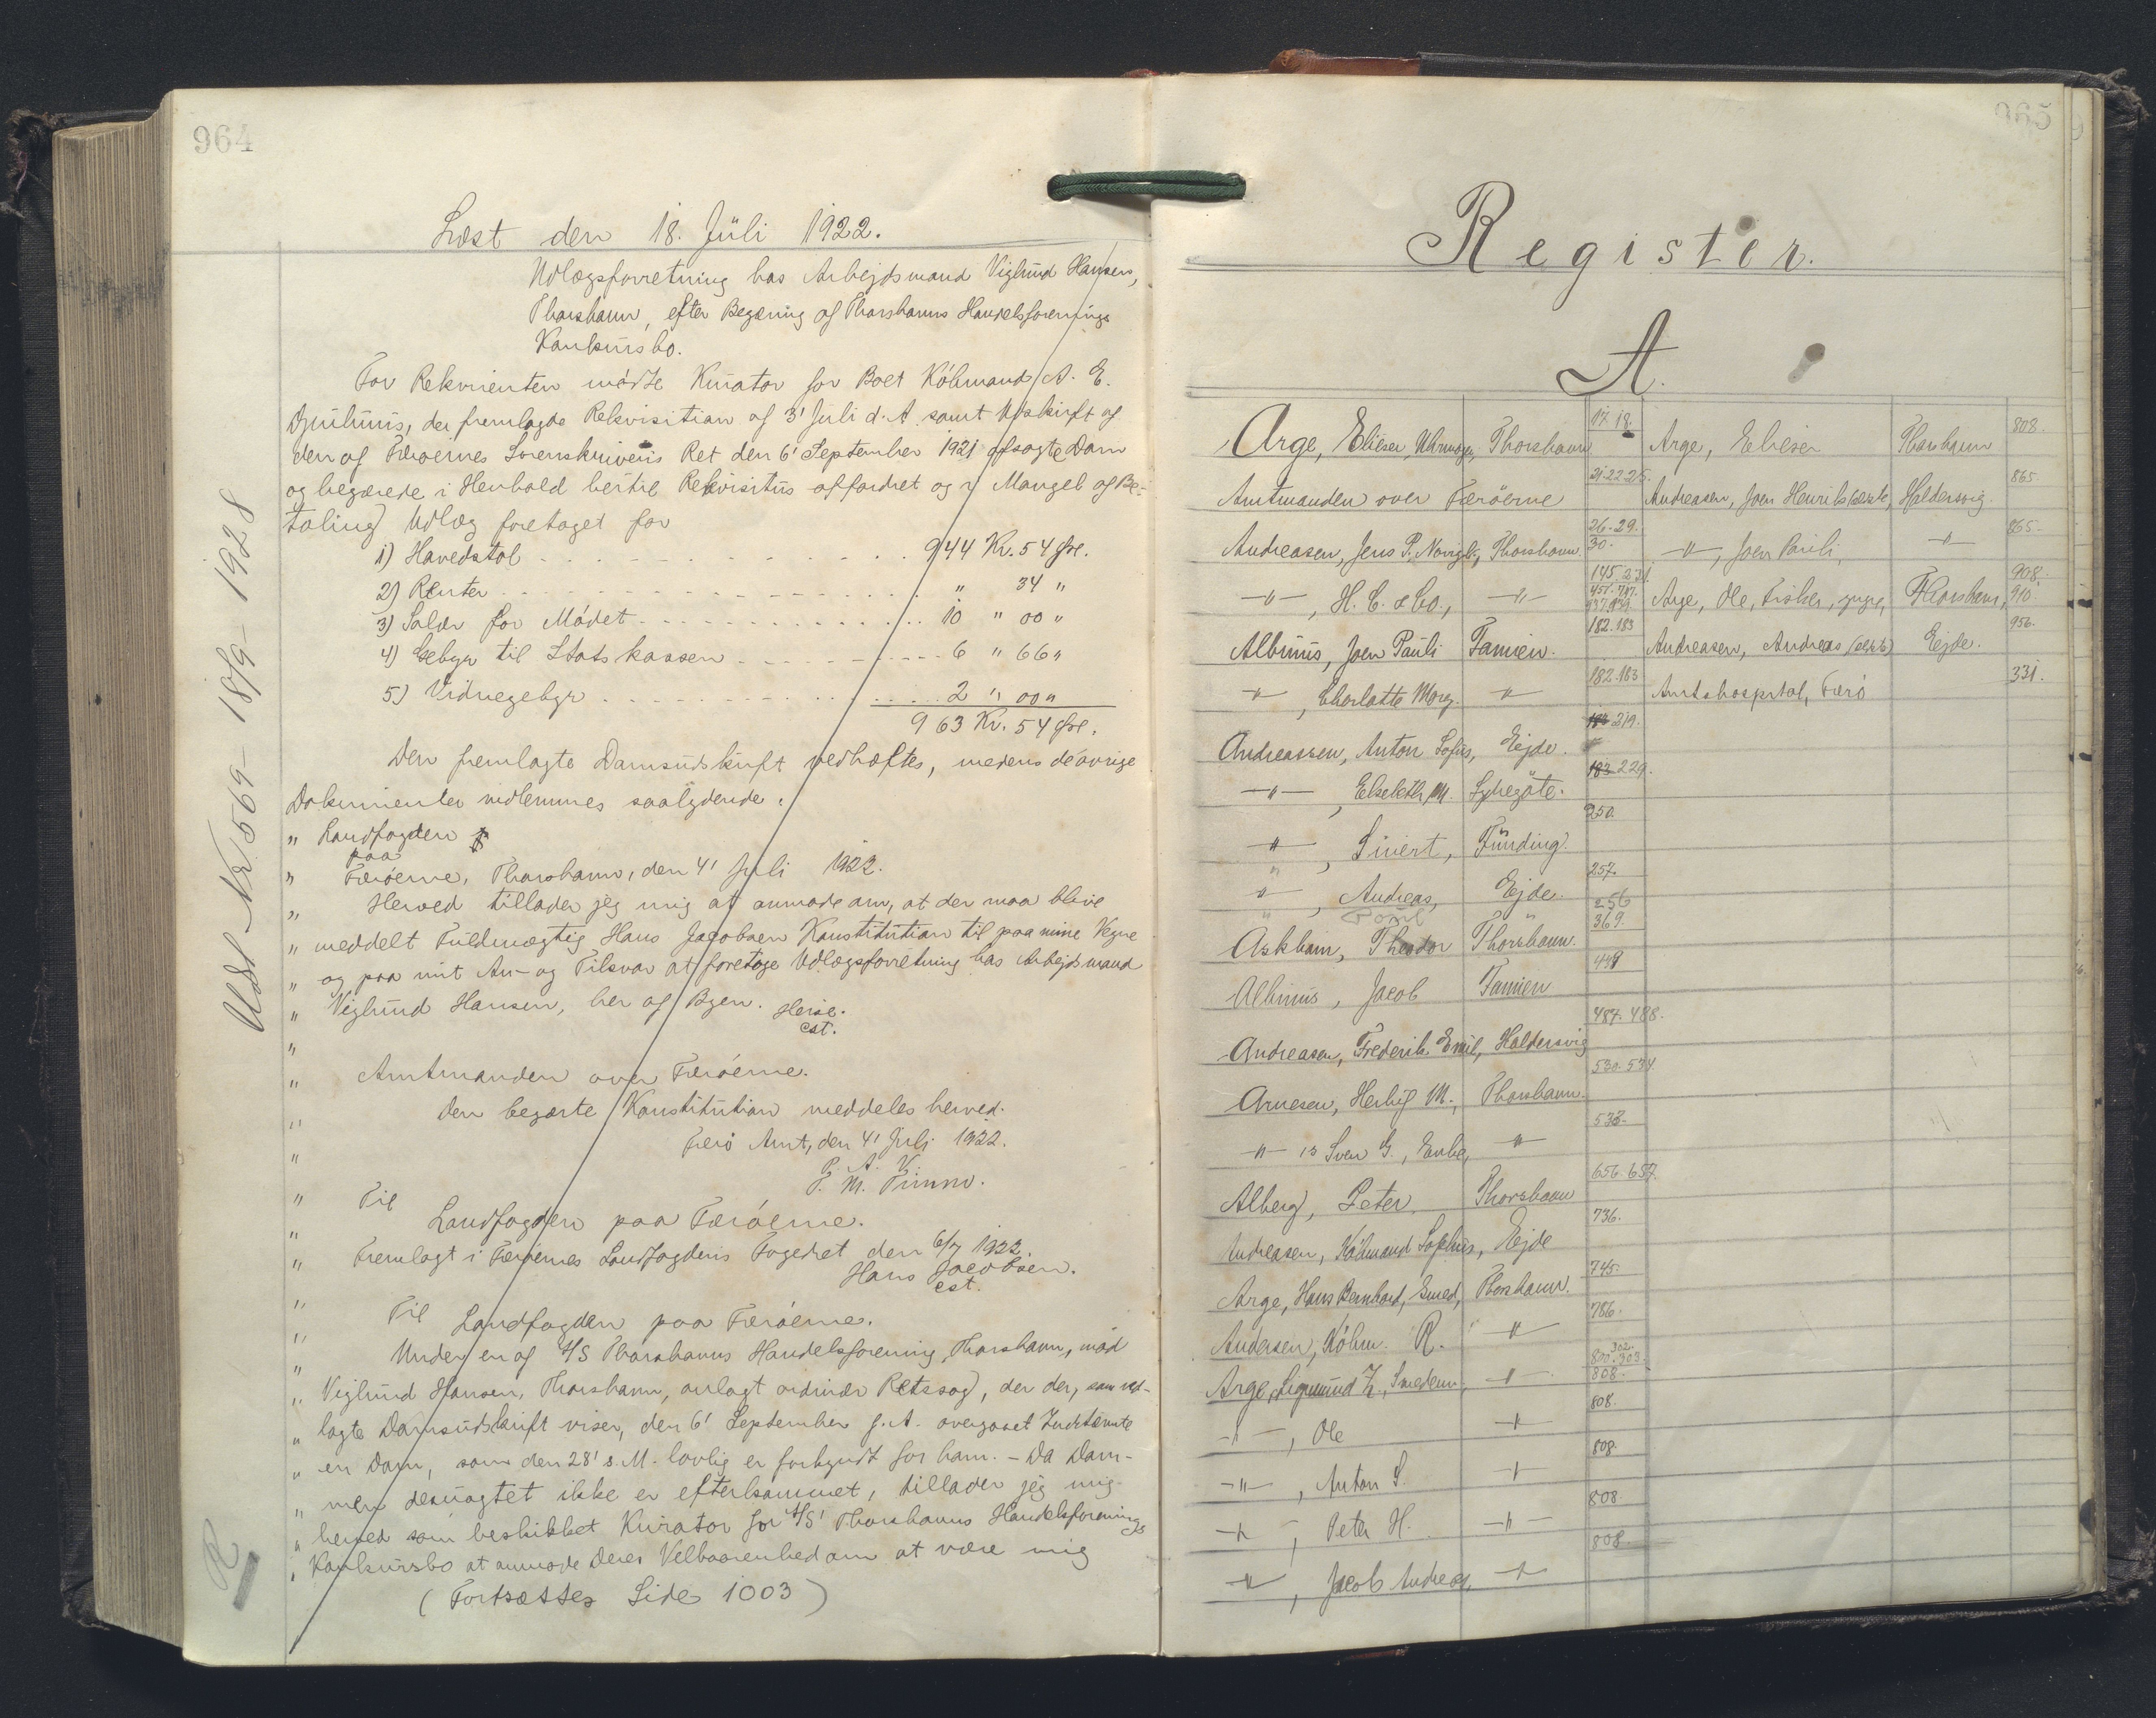 964
Læst den 18. Juli 1922.
Udlægsforretning hos Arbejdsmand Viglund Hansen,
Thorshavn, efter Begæring af Thorshavns Handelsforenings
Konkursbo.
For Rekvirenten mødte Kurator for Boet Köbmand A. E.
Djurhuus, der fremlagde Rekvisition af 3' Juli d. A. samt Udskrift af
den af Færøernes Sorenskriveris Ret den 6' September 1921 afsagte Dom
og begærede i Henhold hertil Rekvisitus affordret og i Mangel af Be-
taling Udlæg foretaget for
1) Hovedstol 944 Kr. 54 Øre.
2) Renter " 34 "
3) Salær for Mødet 10 " 00 "
4) Gebyr til Statskassen 6 " 66 "
5) Vidnegebyr 2 " 00 "
963 Kr. 54 Øre.
Den fremlagte Domsudskrift vedhæftes, medens de øvrige
Dokumenter indlemmes saalydende:
" Landfogden
paa
" Færøerne, Thorshavn, den 4' Juli 1922.
" Herved tillader jeg mig at anmode om, at der maa blive
" meddelt Fuldmægtig Hans Jacobsen Konstitution til paa mine Vegne
" og paa mit An- og Tilsvar at foretage Udlægsforretning hos Arbejdsmand
" Viglund Hansen, her af Byen. Heise.
cst.
" Amtmanden over Færøerne.
" Den begærte Konstitution meddeles herved.
" Færø Amt, den 4' Juli 1922.
P. A. V.
" Til
" Landfogden paa Færøerne.
" Fremlagt i Færøernes Landfogderis Fogedret den 6/7 1922.
Hans Jacobsen.
cst.
" Til
" Landfogden paa Færøerne.
" Under en af A/S Thorshavns Handelsforening, Thorshavn, mod
" Viglund Hansen, Thorshavn, anlagt ordinær Retssag, der der, som ved-
" lagte Domsudskrift viser, den 6' September f. A. overgaaet Indstævnte
" en Dom, som den 28' s. M. lovlig er forkyndt for ham. - Da Dom-
" men desuagtet ikke er efterkommet, tillader jeg mig
" herved som beskikket Kurator for A/S' Thorshavns Handelsforenings
" Konkursbo at anmode Deres Velbaarenhed om at være mig
(Fortsættes Side 1003)
Udst. Nr. 569 - 18/9 - 1928
R
965
Register.
A.
Arge, Elieser, Uhrmager, Thorshavn 17. 18.
Amtmanden over Færöerne 21.22.25.
Andreasen, Jens P. Thorshavn 26. 29. 30.
-"-, H. C. & Co., -"- 145. 231.
Albinus, Joen Pauli Famien. 182. 183
-"-, Charlotte Marg. -"- 182. 183
Andreassen, Anton Sofus, Ejde. 219.
-"-, Elsebeth M. Sydregöte. 229.
-"-, Sivert, Funding 250.
-"-, Andreas, Ejde 257.
Askham, Theodor Thorshavn. 256 369.
Albinus, Jacob Famien 448
Andreasen, Frederik Emil, Haldersvig 487. 488.
Arnesen, Herluf M., Thorshavn. 530. 534
-"- Sven G., Enke, -"- 538.
Alberg, Peter Thorshavn 656. 657.
Andreasen, Köbmand Sophus, Ejde 736.
Arge, Hans Bernhard, Smed, Thorshavn. 745.
Andersen, Köbm. R. -"- 786.
Arge, Sigmund Z., -"- 808.
-"-, Ole -"- 808.
-"-, Anton S. -"- 808.
-"-, Peter H. -"- 808.
-"-, Jacob Andreas, -"- 808.
Arge, Elieser Thorshavn 808.
Andreasen, Joen Henrik Haldersvig. 865.
-"-, Joen Pauli, -"- 865.
Arge, Ole, Fisker, yngre, Thorshavn, 908. 910.
Andreasen, Andreas Ejde. 956.
Amtshospital, Færö 331.